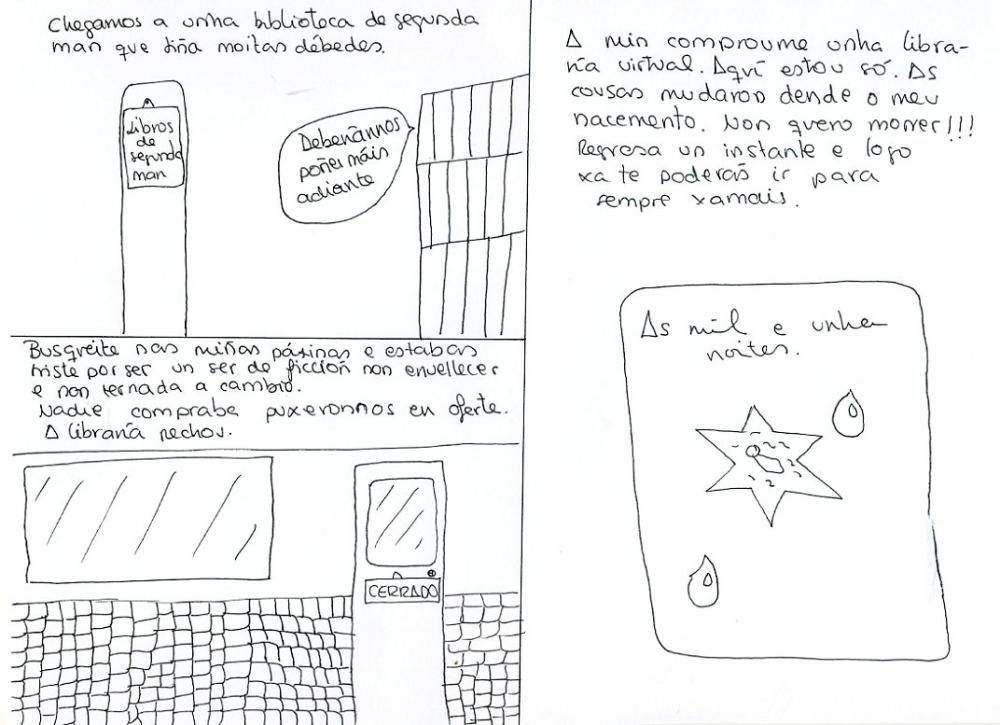 Chegamos a unha biblioteca de segunda
man que tiña moitas débedes.
Libros
de
segunda
man
Deberiannos
poñer máis
adiante
Busqueite nas miñas páxinas e estabas
triste por ser un ser de ficción non envellecer
e non ter nada a cambio.
Nadie compraba puxeronnos en oferte.
A libraría pechou.
CERRADO
A min comproume unha libra-
ría virtual. Aquí estou só. As
cousas mudaron dende o meu
nacemento. Non quero morrer!!!
Regresa un instante e logo
xa te poderás ir para
sempre xamais.
As mil e unha
noites.